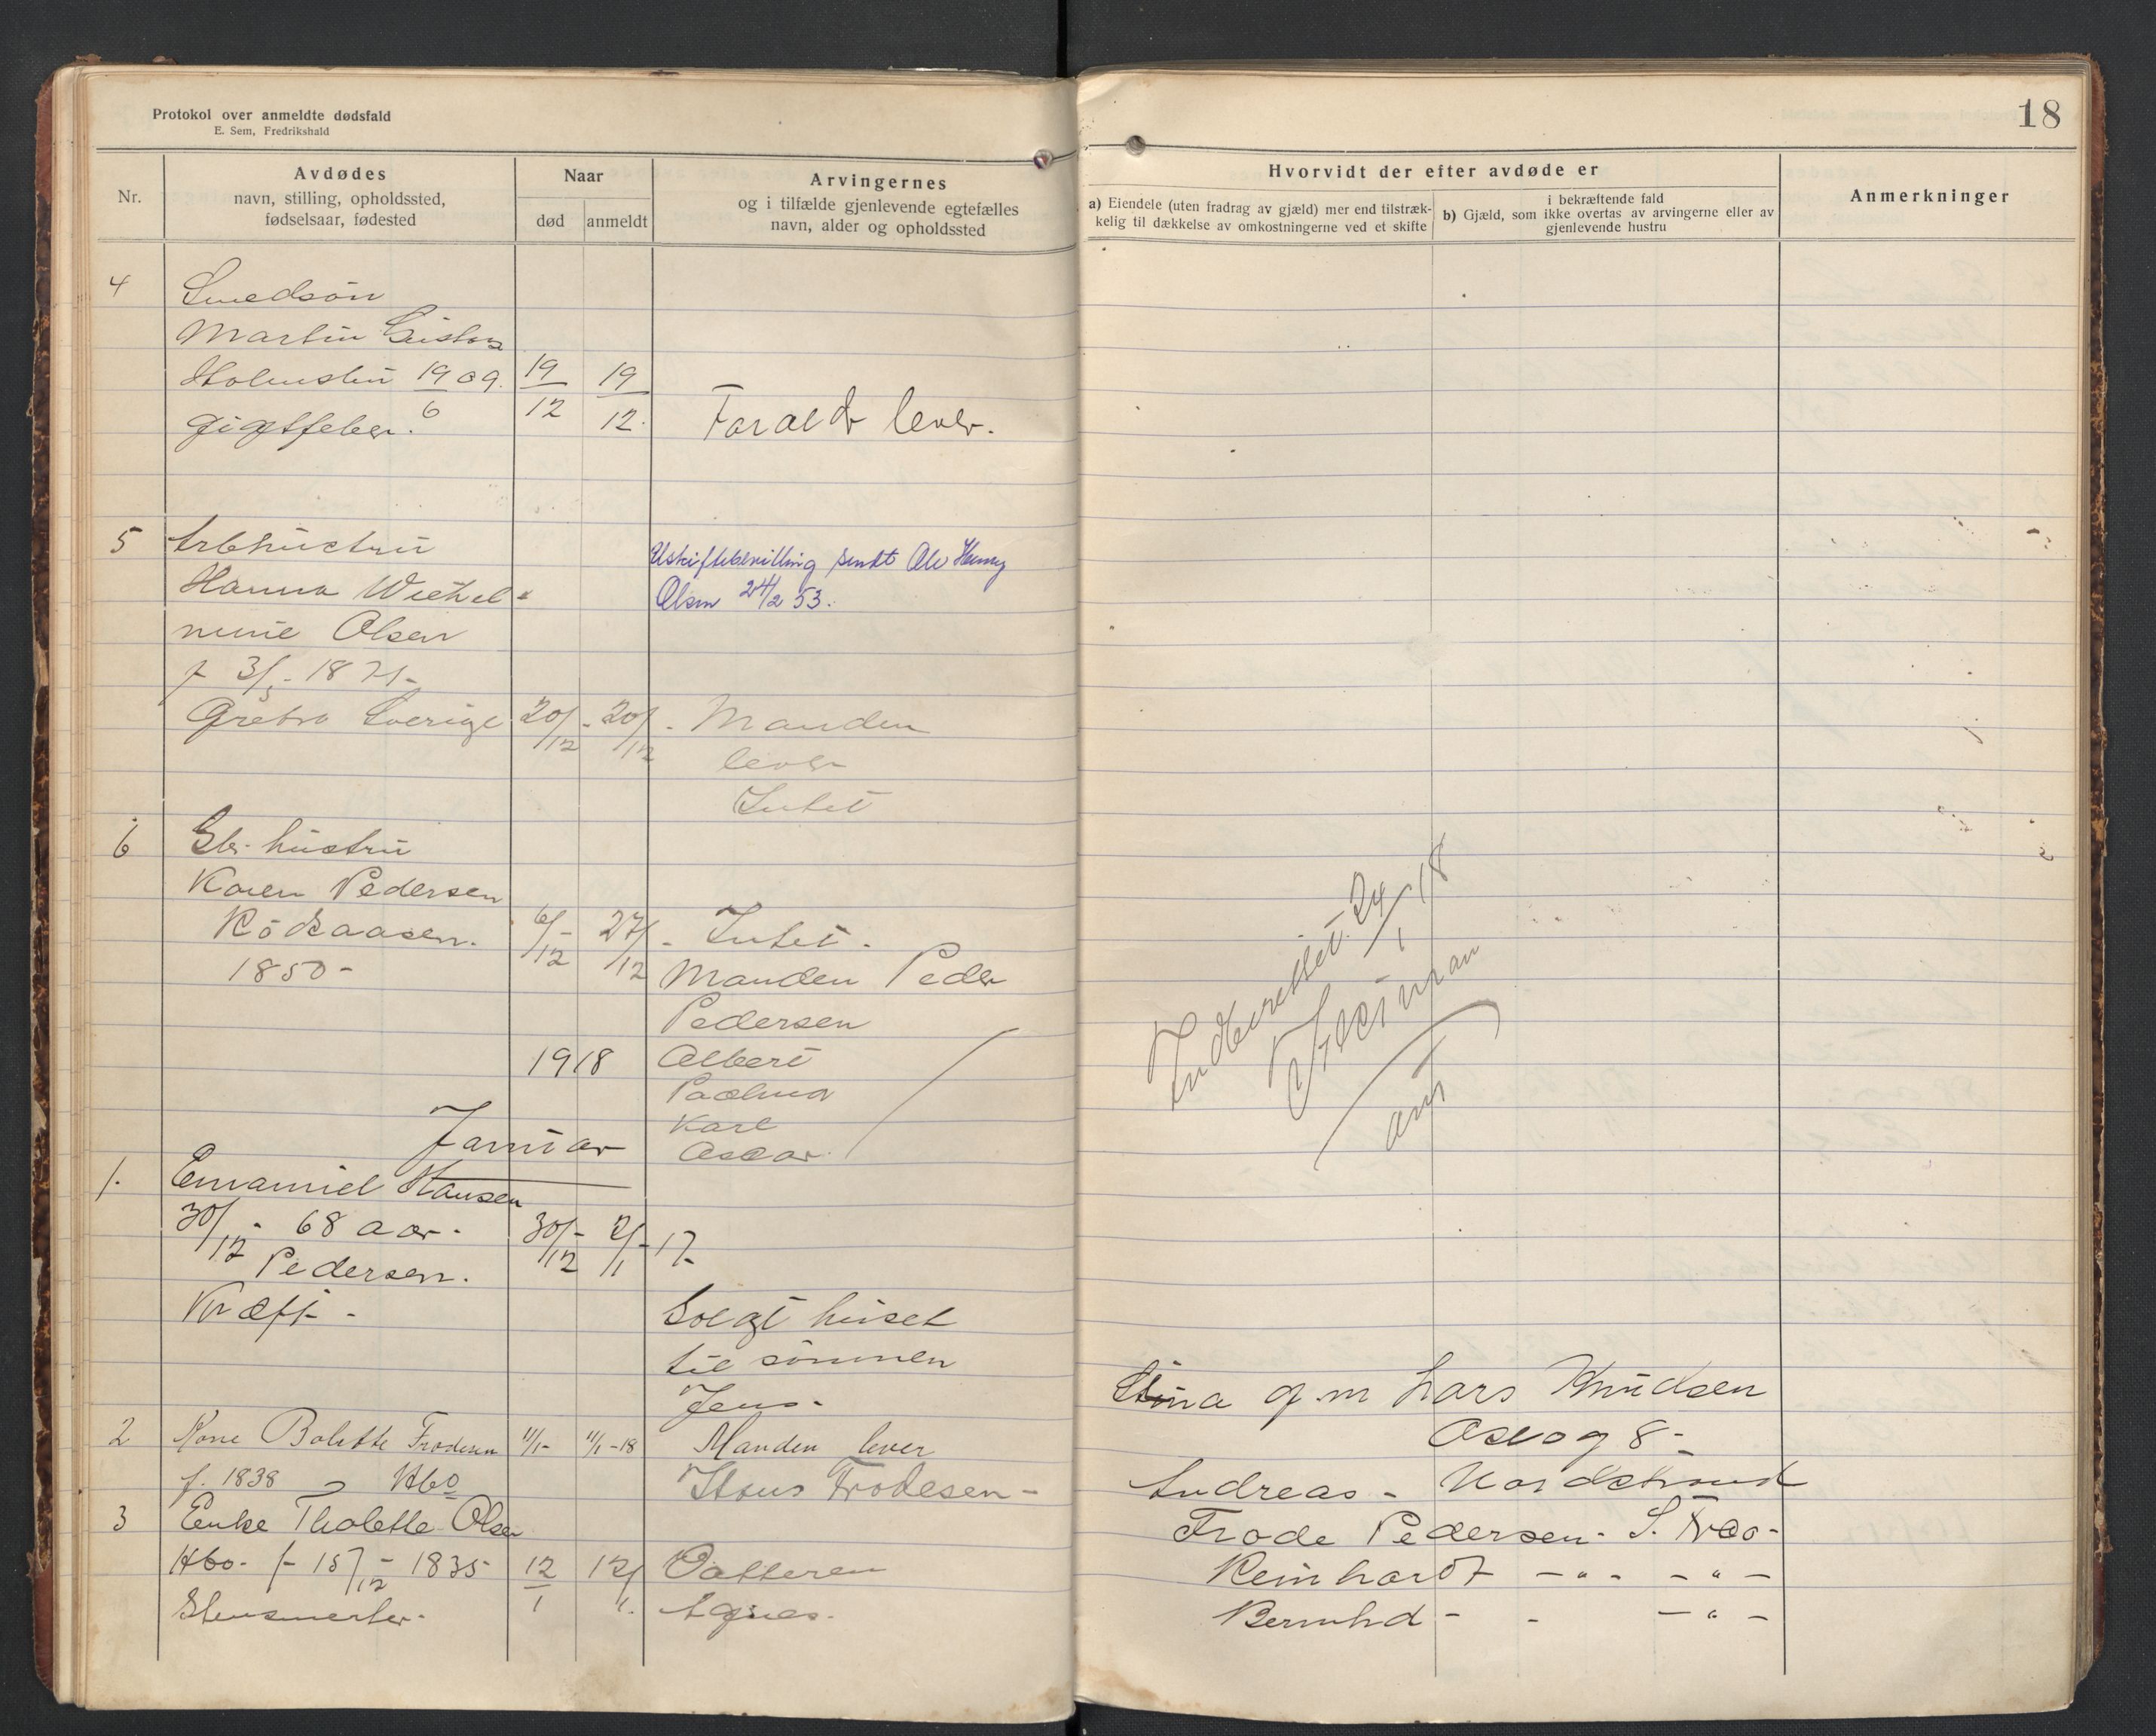 Protokol over anmeldte dødsfald
E. Sem, Fredrikshald
Nr.
Avdødes
navn, stilling, opholdssted,
fødselsaar, fødested
Naar
død
anmeldt
Arvingernes
og i tilfælde gjenlevende egtefælles
navn, alder og opholdssted
4
Smedsøn
Martin
Holmsbu 19/6 09. 19/12 19/12.
gigtfeber. Foraldr lever.
5
Arbhustru
Hanna Wilhel-
mine Olsen
f 3/5 - 1871-
Ørebro Sverige 20/12 - 20/12 - Manden
lever
Intet
Uskiftebevilling sendt Ole Henny
Olsen 24/2 53.
6
Gbr. hustru
Karen Pedersen
Rödsaasen. 6/12 - 27/12 - Intet -
1850 - Manden Peder
Pedersen
Albert
Palma
Karl
Oscar
1918
Januar
1.
Emanuel Hansen
30/12 - 68 aar - 30/12 - 2/1 - 17-
Pedersen.
Kræft -
Solgt huset
til sønnen
Jens -
2 Kone Bolette Frodesen 11/1 - 11/1 - 18 Manden lever
f. 1838 Hbo Hans Frodesen -
3 Enke Tholette Olsen
Hbo - f - 15/12 - 1835 12/1 12/1. Datteren
Agnes.
18
Hvorvidt der efter avdøde er
a) Eiendele (uten fradrag av gjæld) mer end tilstræk-
kelig til dækkelse av omkostningerne ved et skifte
i bekræftende fald
b) Gjæld, som ikke overtas av arvingerne eller av
gjenlevende hustru
Anmerkninger
Indberettet 24/1 - 18
Stina g. m Lars Knudsen
Andreas - Nordstrand
Frode Pedersen -
Reinhardt - " - - " -
Bernhd - - - " -